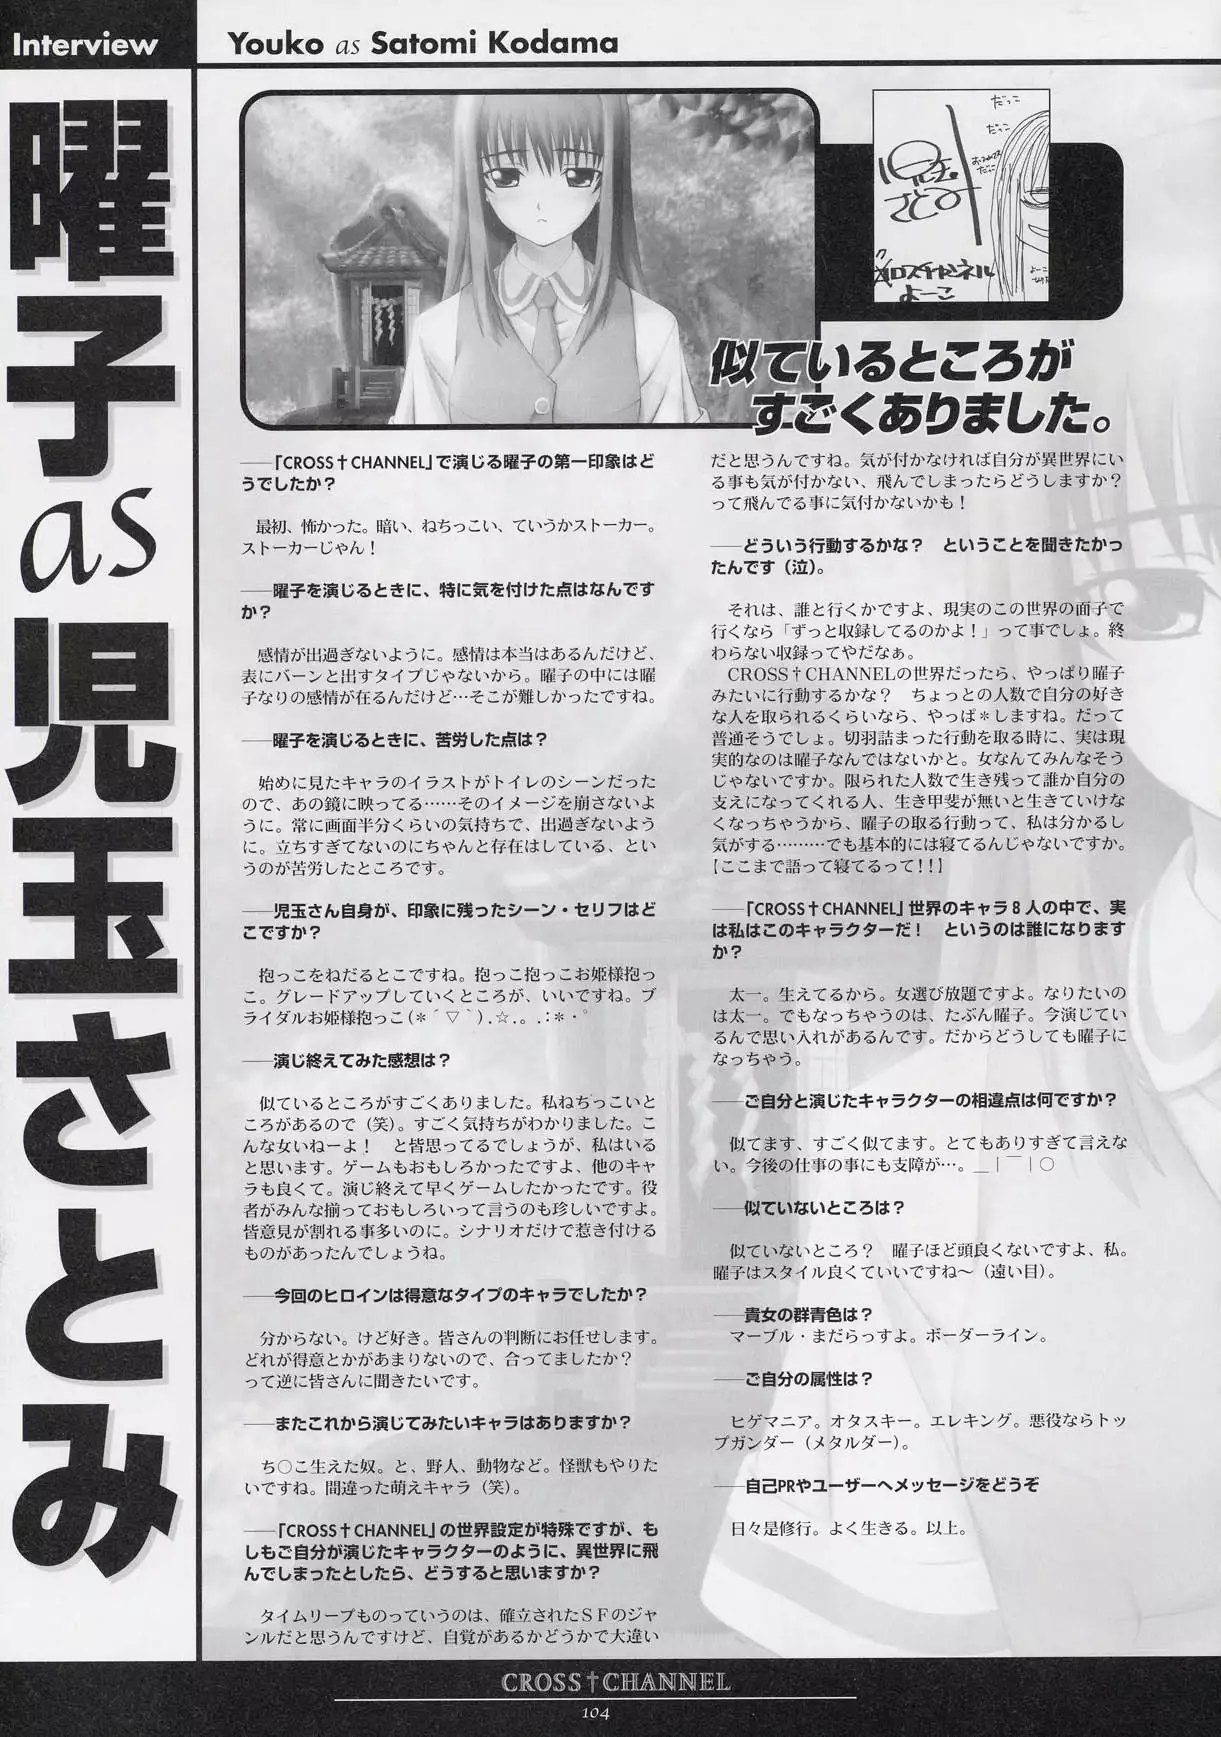 Interview
Youko as Satomi Kodama
曜子 as 児玉さとみ
だっこ
だっこ
だっこ
児玉
さとみ
クロスチャンネル
よーこ
よーこ
似ているところが
すごくありました。
──「CROSS†CHANNEL」で演じる曜子の第一印象はど
うでしたか？
最初、怖かった。暗い、ねちっこい、ていうかストーカー。
ストーカーじゃん！
──曜子を演じるときに、特に気を付けた点はなんです
か？
感情が出過ぎないように。感情は本当はあるんだけど、
表にバーンと出すタイプじゃないから。曜子の中には曜
子なりの感情が在るんだけど…そこが難しかったですね。
──曜子を演じるときに、苦労した点は？
始めに見たキャラのイラストがトイレのシーンだった
ので、あの鏡に映ってる……そのイメージを崩さないよ
うに。常に画面半分くらいの気持ちで、出過ぎないよう
に。立ちすぎてないのにちゃんと存在はしている、とい
うのが苦労したところです。
──児玉さん自身が、印象に残ったシーン・セリフはど
こですか？
抱っこをねだるとこですね。抱っこ抱っこお姫様抱っ
こ。グレードアップしていくところが、いいですね。ブ
ライダルお姫様抱っこ(＊´▽｀).☆.。.:＊・゜
──演じ終えてみた感想は？
似ているところがすごくありました。私ねちっこいと
ころがあるので（笑）。すごく気持ちがわかりました。こ
んな女いねーよ！　と皆思ってるでしょうが、私はいる
と思います。ゲームもおもしろかったですよ、他のキャ
ラも良くて。演じ終えて早くゲームしたかったです。役
者がみんな揃っておもしろいって言うのも珍しいですよ。
皆意見が割れる事多いのに。シナリオだけで惹き付ける
ものがあったんでしょうね。
──今回のヒロインは得意なタイプのキャラでしたか？
分からない。けど好き。皆さんの判断にお任せします。
どれが得意とかがあまりないので、合ってましたか？
って逆に皆さんに聞きたいです。
──またこれから演じてみたいキャラはありますか？
ち○こ生えた奴。と、野人、動物など。怪獣もやりた
いですね。間違った萌えキャラ（笑）。
──「CROSS†CHANNEL」の世界設定が特殊ですが、も
しもご自分が演じたキャラクターのように、異世界に飛
んでしまったとしたら、どうすると思いますか？
タイムリープものっていうのは、確立されたＳＦのジャ
ンルだと思うんですけど、自覚があるかどうかで大違い
だと思うんですね。気が付かなければ自分が異世界にい
る事も気が付かない、飛んでしまったらどうしますか？
って飛んでる事に気付かないかも！
──どういう行動するかな？　ということを聞きたかっ
たんです（泣）。
それは、誰と行くかですよ、現実のこの世界の面子で
行くなら「ずっと収録してるのかよ！」って事でしょ。終
わらない収録ってやだなぁ。
CROSS†CHANNELの世界だったら、やっぱり曜子
みたいに行動するかな？　ちょっとの人数で自分の好き
な人を取られるくらいなら、やっぱ＊しますね。だって
普通そうでしょ。切羽詰まった行動を取る時に、実は現
実的なのは曜子なんではないかと。女なんてみんなそう
じゃないですか。限られた人数で生き残って誰か自分の
支えになってくれる人、生き甲斐が無いと生きていけな
くなっちゃうから、曜子の取る行動って、私は分かるし
気がする………でも基本的には寝てるんじゃないですか。
【ここまで語って寝てるって！！】
──「CROSS†CHANNEL」世界のキャラ８人の中で、実
は私はこのキャラクターだ！　というのは誰になります
か？
太一。生えてるから。女選び放題ですよ。なりたいの
は太一。でもなっちゃうのは、たぶん曜子。今演じてい
るんで思い入れがあるんです。だからどうしても曜子に
なっちゃう。
──ご自分と演じたキャラクターの相違点は何ですか？
似てます、すごく似てます。とてもありすぎて言えな
い。今後の仕事の事にも支障が…。＿｜￣｜○
──似ていないところは？
似ていないところ？　曜子ほど頭良くないですよ、私。
曜子はスタイル良くていいですね〜（遠い目）。
──貴女の群青色は？
マーブル・まだらっすよ。ボーダーライン。
──ご自分の属性は？
ヒゲマニア。オタスキー。エレキング。悪役ならトッ
プガンダー（メタルダー）。
──自己PRやユーザーへメッセージをどうぞ
日々是修行。よく生きる。以上。
CROSS†CHANNEL
104